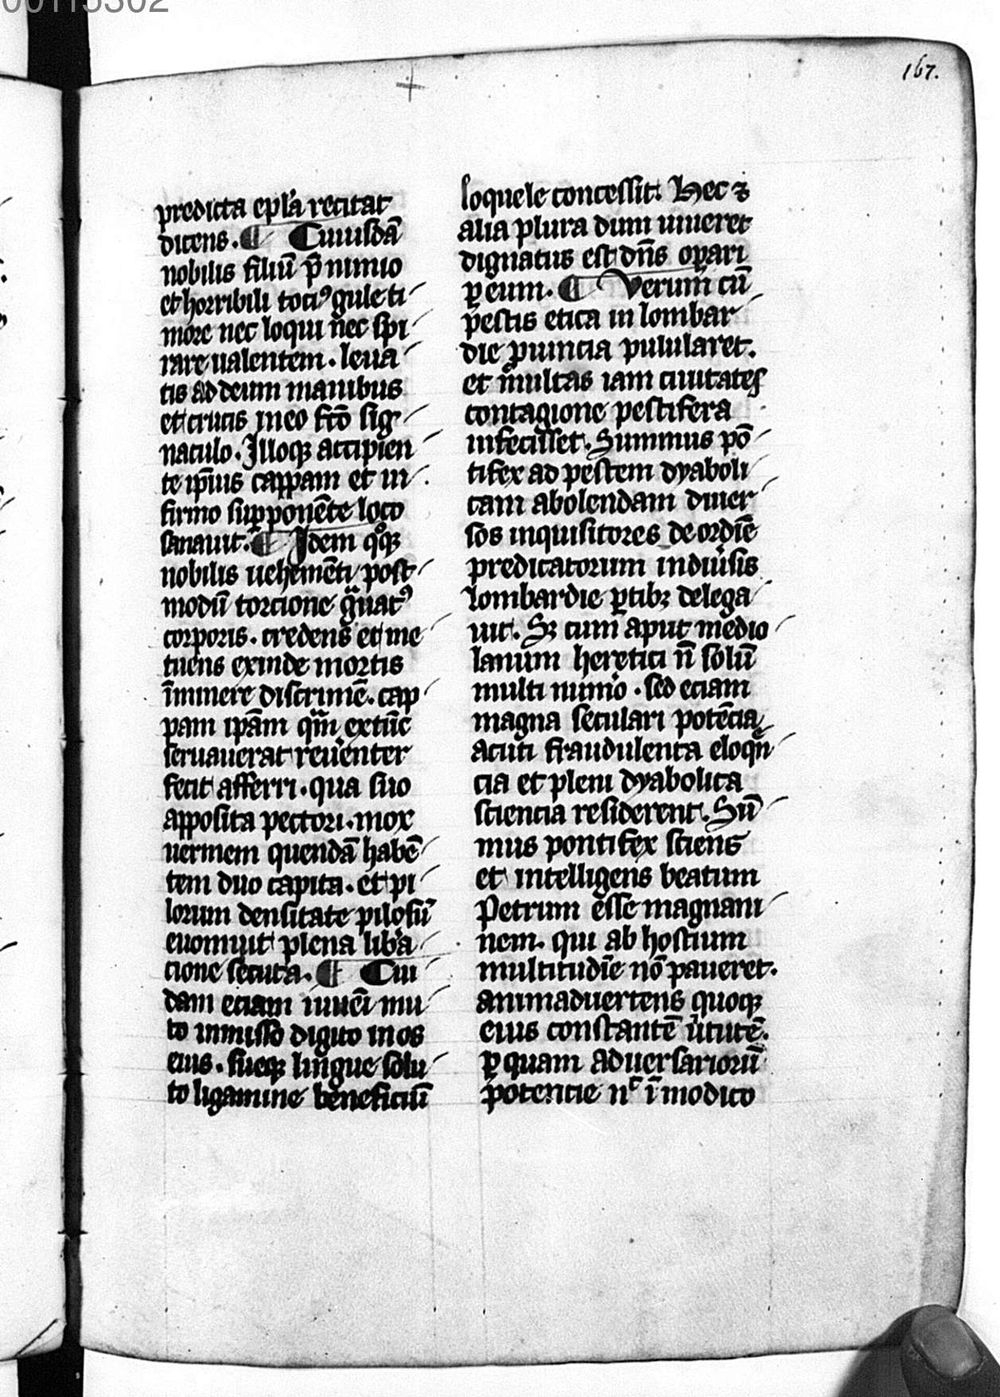 00115302
167.
predicta epl̄a recitat
dicens. ¶ Cuiusdā
nobilis filiū p̄ nimio
et horribili tociꝰ gule ti
more nec loqui nec spi
rare ualentem. leua
tis ad deum manibus
et crucis in eo fc̄o sig
naculo. Illoqꝫ accipien
te ip̄ius cappam et in
firmo supponēte loco
sanauit. ¶ Idem qͦqꝫ
nobilis uehemēti post
modū torcione gͣuatꝰ
corporis. credens et me
tuens exinde mortis
īminere discrimē. cap
pam ip̄am qͣm extūc
seruauerat reuēnter
fecit afferri. qua suo
apposita pectori. mox
uermem quendā habē
tem duo capita. et pi
lorum densitate pilosū
euomuit plena lib̓a
cione secuta. ¶ Cui
dam eciam iuueī mu
to inmisso digito in os
eius. sueqꝫ lingue solu
to ligamine beneficiū
loquele concessit. Hec ⁊
alia plura dum uiueret
dignatus est dn̄s oꝑari
ꝑ eum. ¶ Verum cū
pestis etica in lombar
die ꝓuincia pulularet.
et m̄ultas iam ciuitates
contagione pestifera
infecisset. Summus pō
tifex ad pestem dyaboli
cam abolendam diuer
sos inquisitores de ordīe
predicatorum in diu̓sis
lombardie ꝑtibꝫ delega
uit. Sꝫ cum aput medio
lanum heretici n̄ solū
multi num̓o. sed eciam
magna seculari potēcia
acuti fraudulenta eloqn̄
cia et pleni dyabolica
sciencia residerent. Sū
mus pontifex sciens
et intelligens beatum
Petrum esse magnani
nem. qui ab hostium
multitudīe nō paueret.
animaduertens quoqꝫ
eius constantē u̓tutē.
ꝑ quam aduersariorū
potencie nͨ ī modico